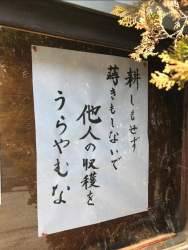 耕しもせず
蒔きもしないで
他人の収穫を
うらやむな